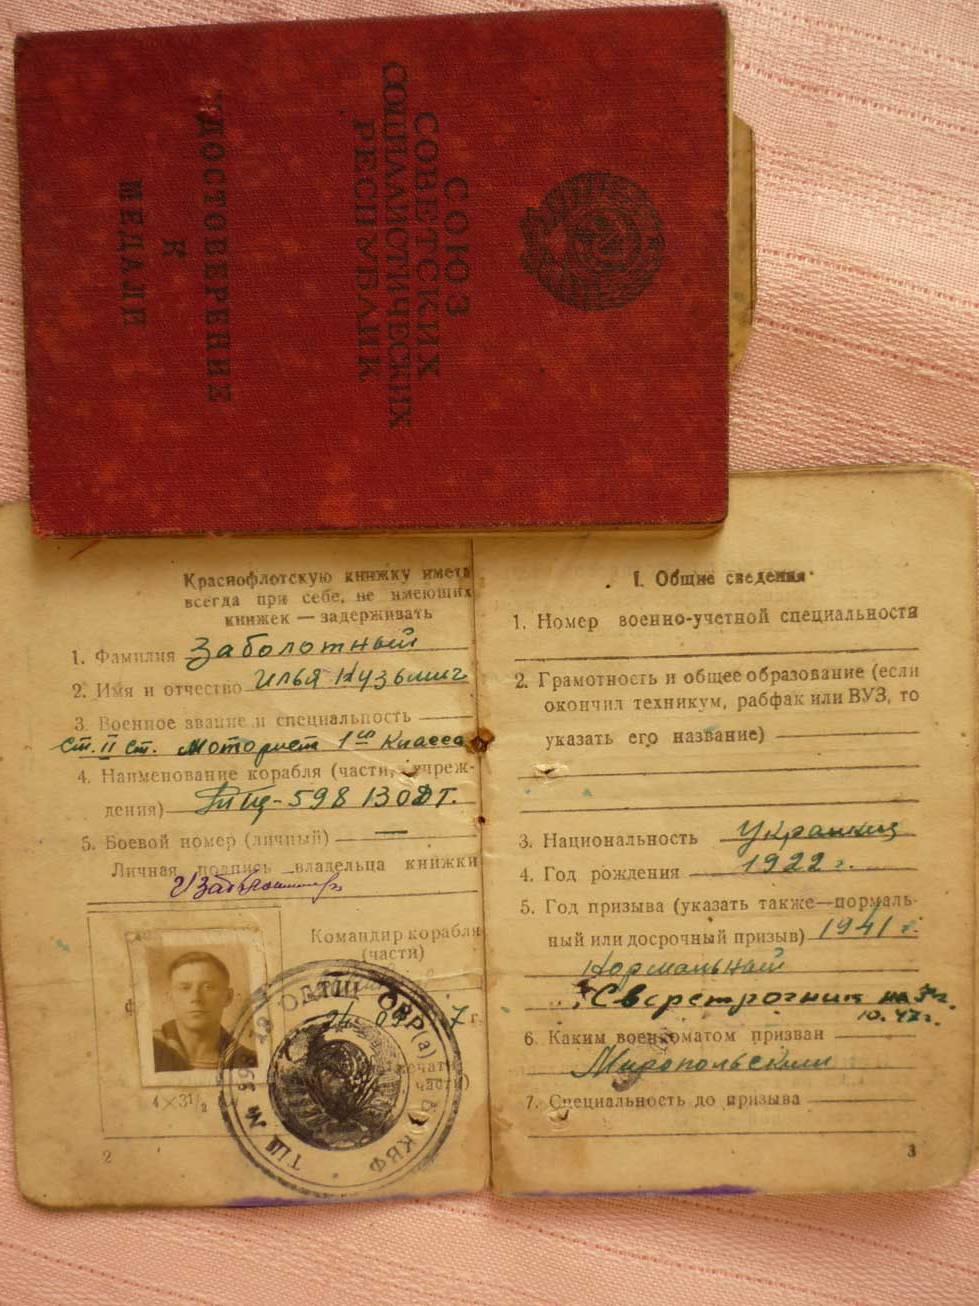 СОЮЗ
СОВЕТСКИХ
СОЦИАЛИСТИЧЕСКИХ
РЕСПУБЛИК
УДОСТОВЕРЕНИЕ
К
МЕДАЛИ
Краснофлотскую книжку иметь
всегда при себе, не имеющих
книжек — задерживать
1. Фамилия Заболотный
2. Имя и отчество Илья Кузьмич
3. Военное звание и специальность
Ст. II ст. Моторист 1го Класса
4. Наименование корабля (части, учреж-
дения) ТЩ-598 13 ОДТ.
5. Боевой номер (личный) —
Личная подпись владельца книжки
Командир корабля
(части)
7 г.
4×3 1/2
ТЩ № 598 13 ОДТЩ ОВР(а) КВФ
2
I. Общие сведения
1. Номер военно-учетной специальности
2. Грамотность и общее образование (если
окончил техникум, рабфак или ВУЗ, то
указать его название)
3. Национальность Украинец
4. Год рождения 1922 г.
5. Год призыва (указать также—нормаль-
ный или досрочный призыв) 1941 г.
Нормальный
Сверхсрочник на
10.47г.
6. Каким военкоматом призван
Миропольским
7. Специальность до призыва
3